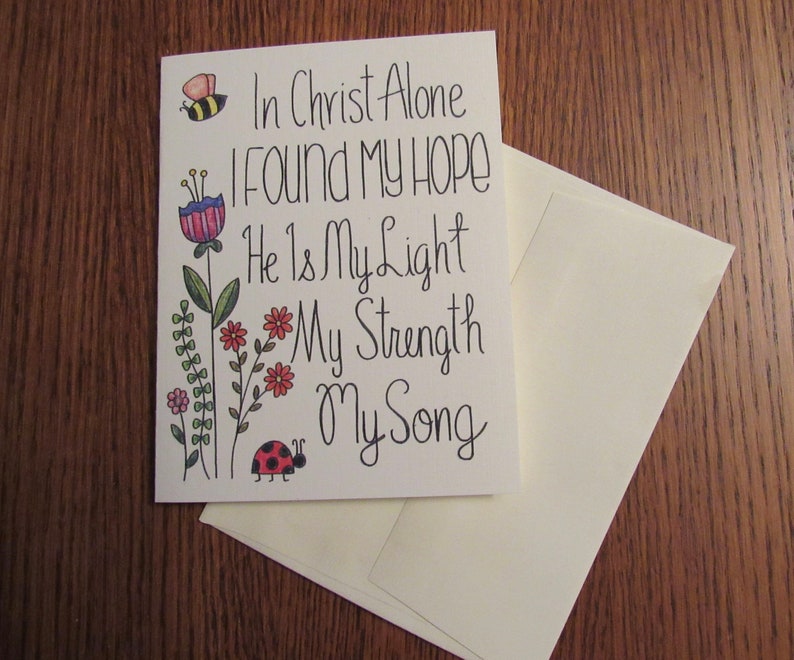 In Christ Alone
I FOUNd MY HOPE
He Is My Light
My Strength
My Song